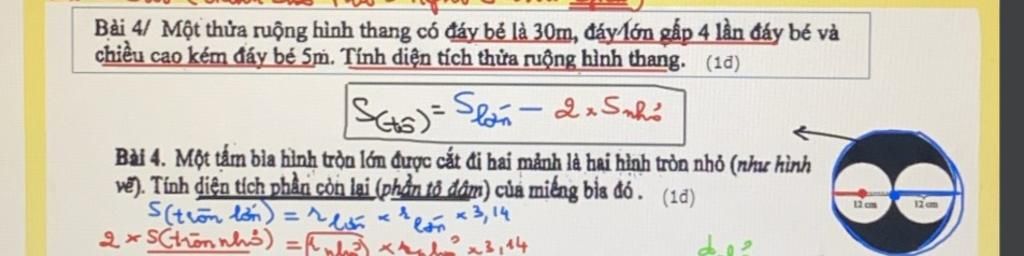 Bài 4/ Một thửa ruộng hình thang có đáy bé là 30m, đáy lớn gấp 4 lần đáy bé và
chiều cao kém đáy bé 5m. Tính diện tích thửa ruộng hình thang. (1đ)
S(tô) = S lớn - 2 x S nhỏ
Bài 4. Một tấm bìa hình tròn lớn được cắt đi hai mảnh là hai hình tròn nhỏ (như hình
vẽ). Tính diện tích phần còn lại (phần tô đâm) của miếng bìa đó . (1đ)
12 cm 12 cm
S(tròn lớn) = r lớn x r lớn x 3,14
2 x S(tròn nhỏ) = r nhỏ x r nhỏ x 3,14